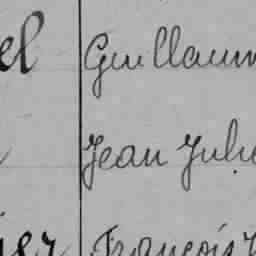 el Guillaum
Jean Julie
ier François